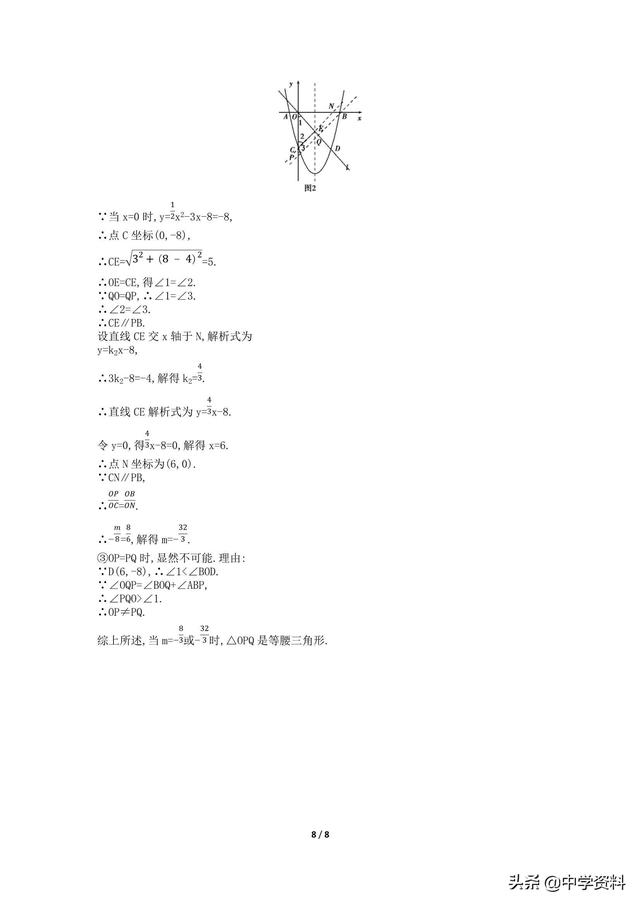 y
A O 1 N B x
2 E
C 3 Q D
P l
图2
∵当 x=0 时,y=\frac{1}{2}x²-3x-8=-8,
∴点 C 坐标(0,-8),
∴CE=\sqrt{3² + (8 - 4)²}=5.
∴OE=CE,得∠1=∠2.
∵QO=QP,∴∠1=∠3.
∴∠2=∠3.
∴CE∥PB.
设直线 CE 交 x 轴于 N,解析式为
y=k₂x-8,
∴3k₂-8=-4,解得 k₂=\frac{4}{3}.
∴直线 CE 解析式为 y=\frac{4}{3}x-8.
令 y=0,得\frac{4}{3}x-8=0,解得 x=6.
∴点 N 坐标为(6,0).
∵CN∥PB,
∴\frac{OP}{OC}=\frac{OB}{ON}.
∴-\frac{m}{8}=\frac{8}{6},解得 m=-\frac{32}{3}.
③OP=PQ 时,显然不可能.理由:
∵D(6,-8),∴∠1<∠BOD.
∵∠OQP=∠BOQ+∠ABP,
∴∠PQO>∠1.
∴OP≠PQ.
综上所述,当 m=-\frac{8}{3}或-\frac{32}{3}时,△OPQ 是等腰三角形.
8 / 8
头条 @中学资料